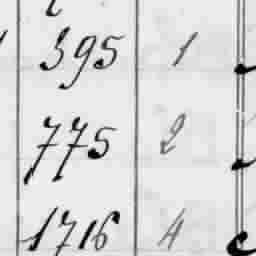 395 1
775 2
1716 4